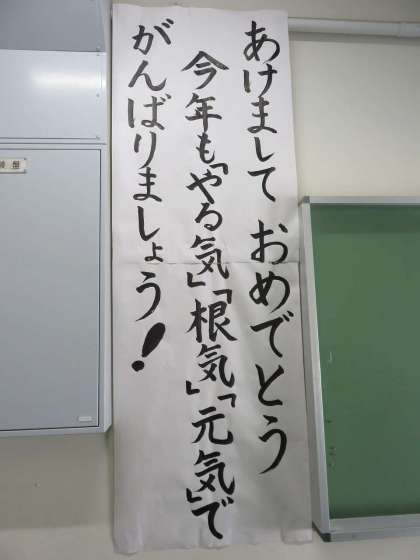 あけまして おめでとう
今年も「やる気」「根気」「元気」で
がんばりましょう！